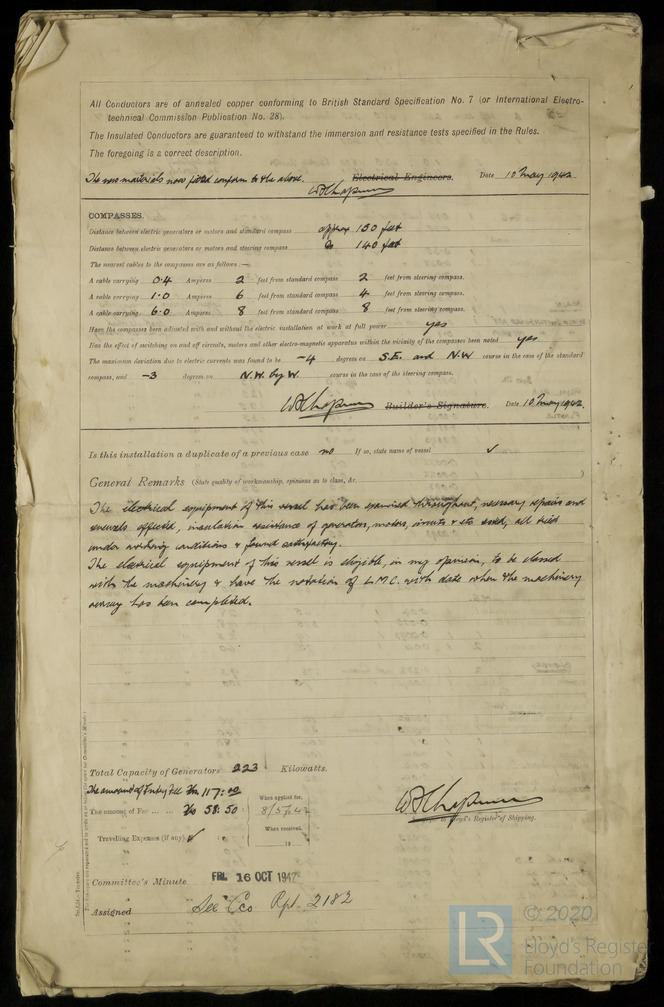 All Conductors are of annealed copper conforming to British Standard Specification No. 7 (or International Electro-
technical Commission Publication No. 28).
The Insulated Conductors are guaranteed to withstand the immersion and resistance tests specified in the Rules.
The foregoing is a correct description.
The new materials now fitted conform to the above. Electrical Engineers. Date 10 May 1942
W F Chapman
COMPASSES.
Distance between electric generators or motors and standard compass approx 150 feet
Distance between electric generators or motors and steering compass 140 feet
The nearest cables to the compasses are as follows:—
A cable carrying 0.4 Amperes 2 feet from standard compass 2 feet from steering compass.
A cable carrying 1.0 Amperes 6 feet from standard compass 4 feet from steering compass.
A cable carrying 6.0 Amperes 8 feet from standard compass 8 feet from steering compass.
Have the compasses been adjusted with and without the electric installation at work at full power yes
Has the effect of switching on and off circuits, motors and other electro-magnetic apparatus within the vicinity of the compasses been noted yes
The maximum deviation due to electric currents was found to be -4 degrees on S.E. and N.W course in the case of the standard
compass, and -3 degrees on N.W. by W. course in the case of the steering compass.
W F Chapman Builder's Signature. Date 10 May 1942.
Is this installation a duplicate of a previous case no If so, state name of vessel ✓
General Remarks (State quality of workmanship, opinions as to class, &c. )
The electrical equipment of this vessel has been examined throughout, necessary repairs and
renewals effected, insulation resistance of generators, motors, circuits & etc , all tried
under working conditions & found satisfactory.
The electrical equipment of this vessel is eligible, in my opinion, to be classed
with the machinery & have the notation of L.M.C. with date when the machinery
survey has been completed.
Total Capacity of Generators 223 Kilowatts.
The amount of Fee 117:00
The amount of Fee ... ... 58:50
When applied for, 8/5/42
When received,
Travelling Expenses (if any) ✓
W F Chapman
Surveyor to Lloyd's Register of Shipping.
Committee's Minute FRI. 16 OCT 1942
Assigned See Rpt. 2182
LR © 2020
Lloyd's Register
Foundation